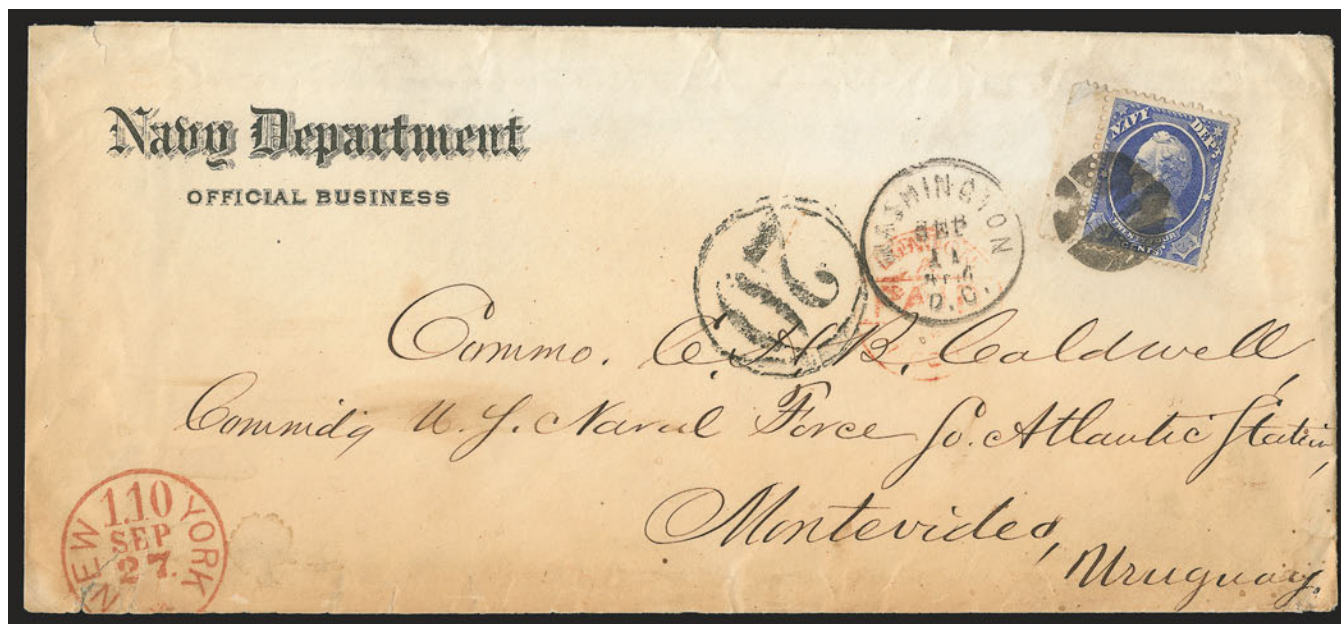 Navy Department
OFFICIAL BUSINESS
NAVY DEPT.
TWENTY FOUR
CENTS
WASHINGTON
SEP
11
D.C.
20
Commo. C. H. B. Caldwell,
Commdg U. S. Naval Force So. Atlantic Station
Montevideo,
Uruguay.
NEW YORK
1.10
SEP
27.